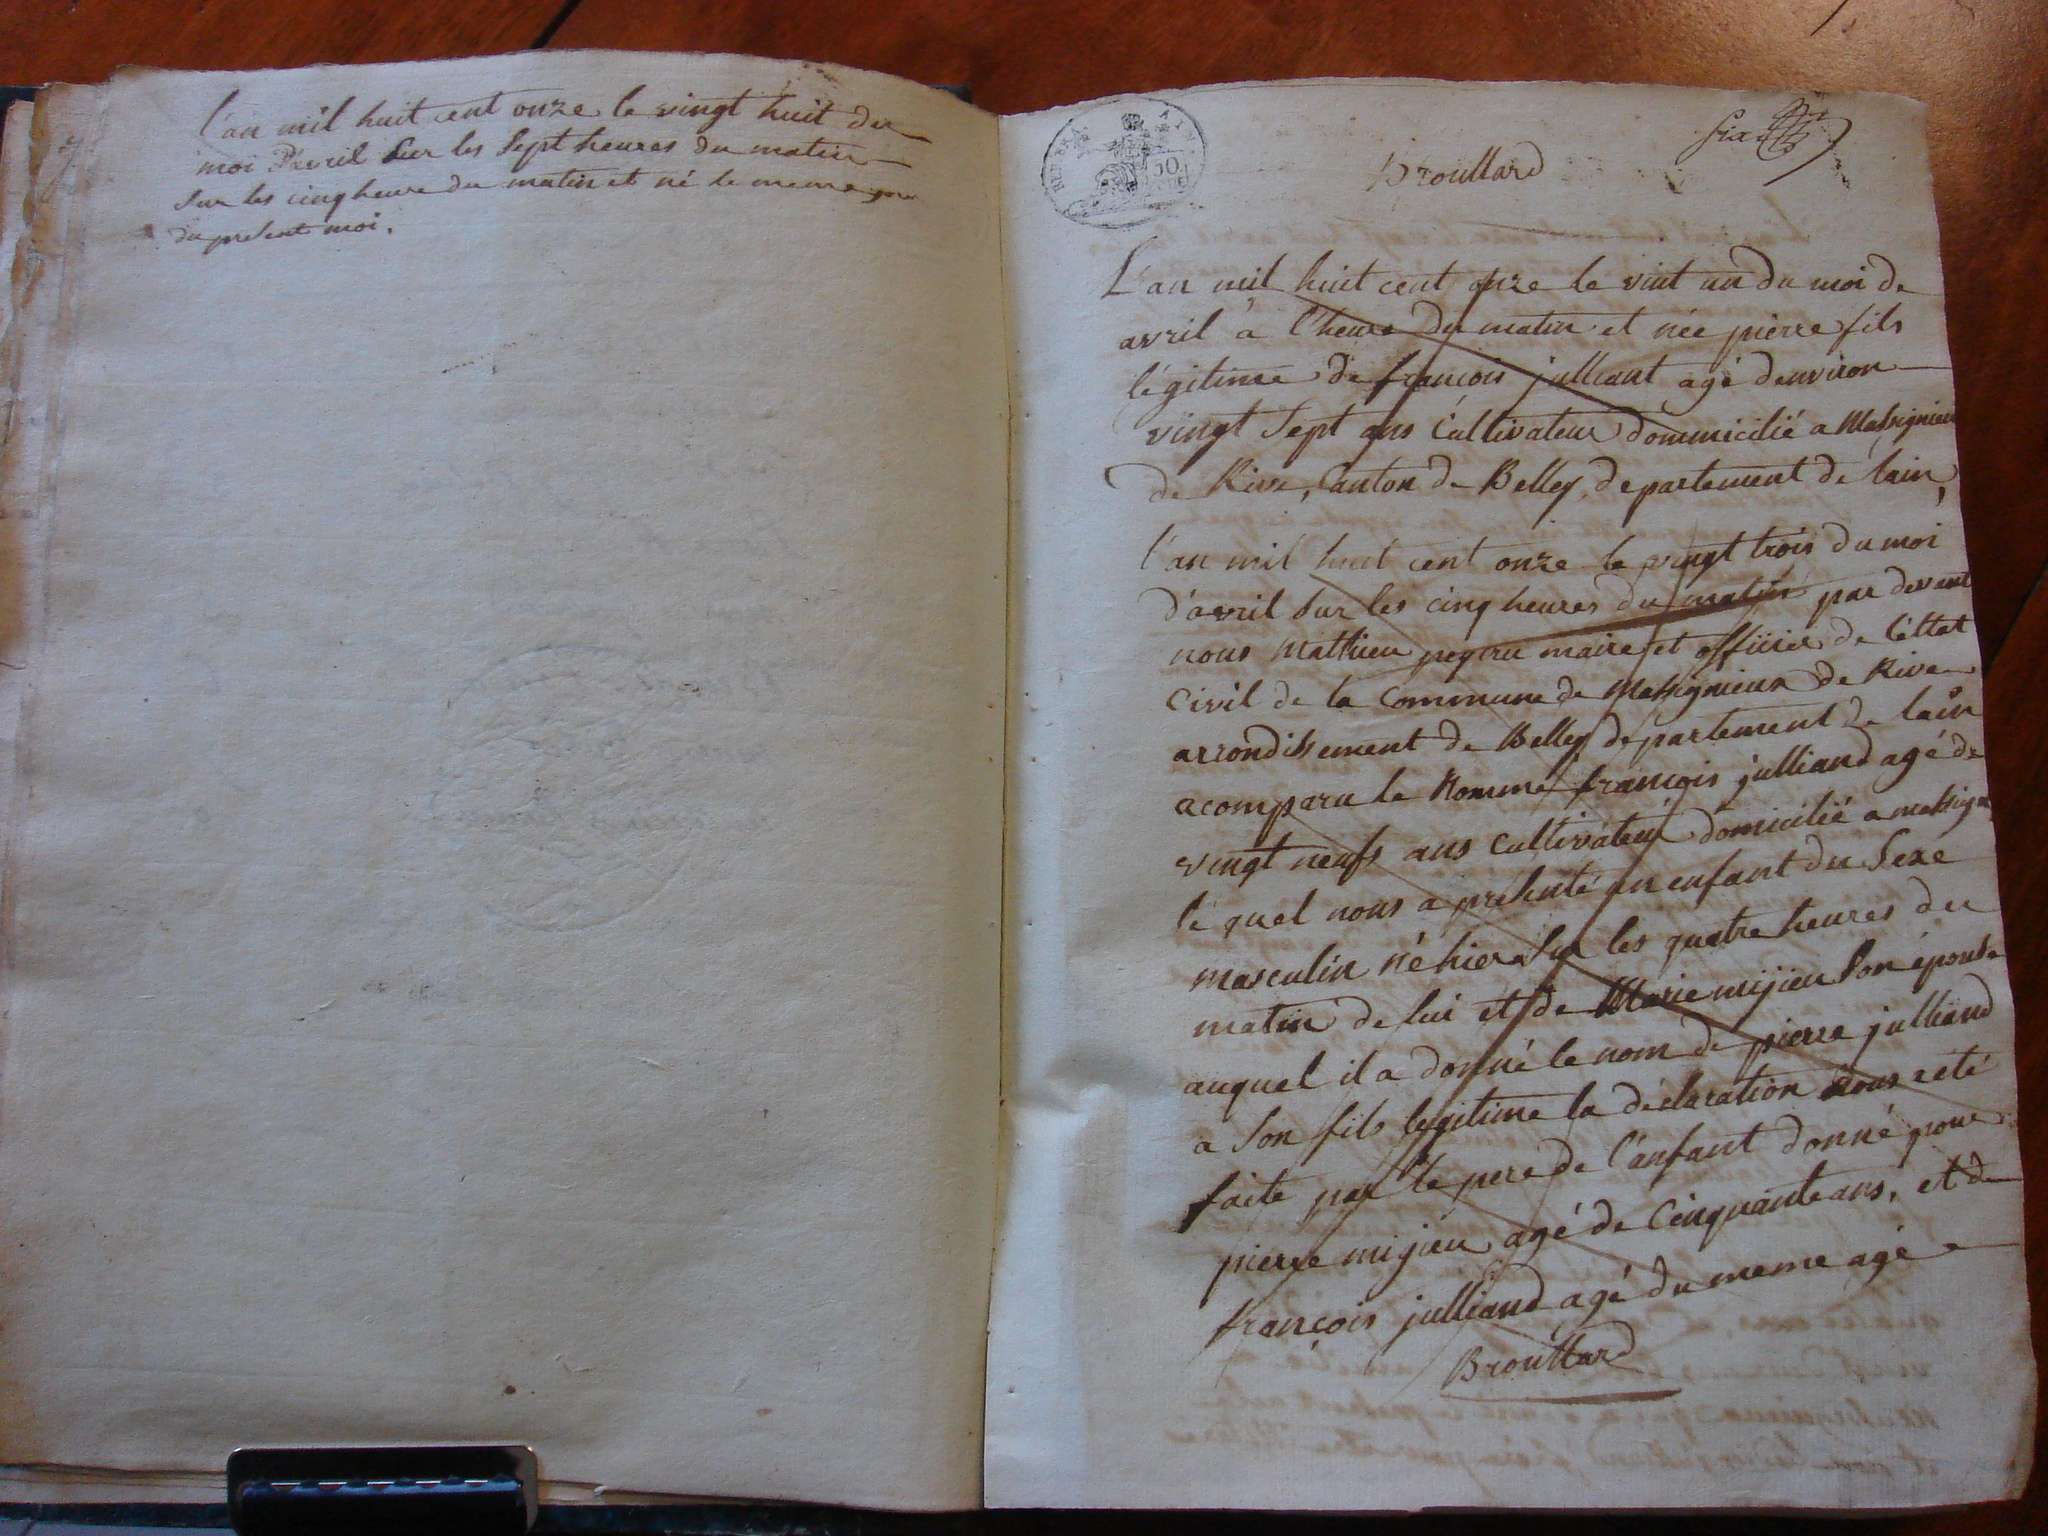 l'an mil huit cent onze le vingt huit du
moi d'avril sur les sept heures du matin
sur les cinq heure du matin et né le meme jour
du present moi.
Brouillard
L'an mil huit cent onze le vint un du moi de
avril à l'heure du matin et née pierre fils
légitime de françois julliant agé d'environ
vingt sept ans Cultivateur dommicilié a Massignieu
de Rive, Canton de Belley, departement de lain,
l'an mil huit cent onze le vingt trois du moi
d'avril sur les cinq heures du matin par devant
nous Mathieu maire et officier de l'éttat
civil de la Commune de Massignieux de Rive
arrondissement de Belley departement de lain
a comparu le Nommé françois julliand agé de
vingt neufs ans Cultivateur domicilié a massign
le quel nous a présenté un enfant du Sexe
masculin né hier sur les quatre heures du
matin de lui et de Marie mijieu son épouse
auquel il a donné le nom de pierre julliand
a son fils legitime la déclaration nous a eté
faite par le pere de l'anfant donné pour
pierre mijieu agé de Cinquante ans, et de
françois julliand agé du meme agé
Brouillard